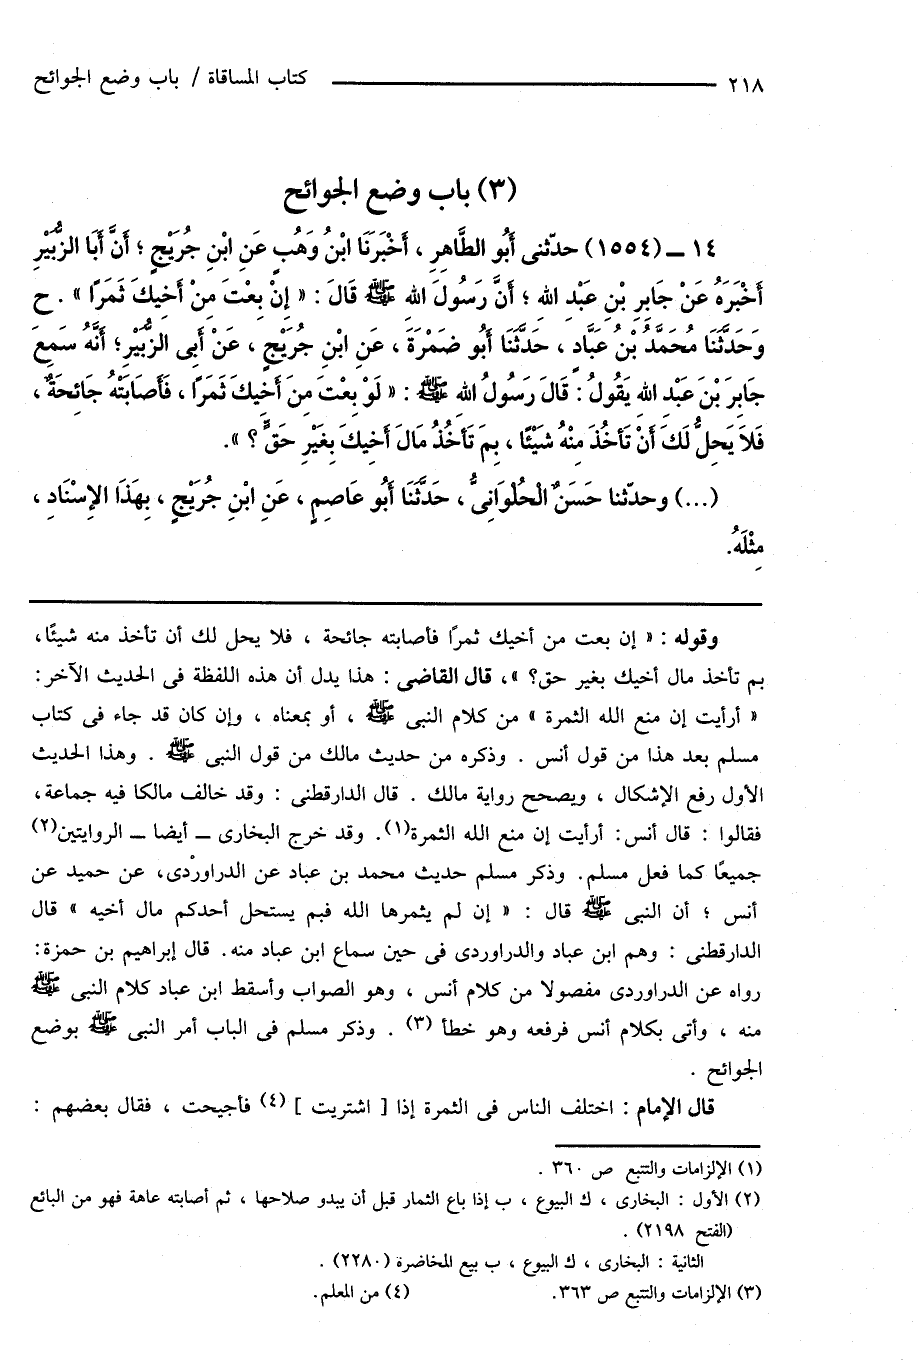 ٢١٨ كتاب المساقاة / باب وضع الجوائح
(٣) باب وضع الجوائح
١٤ ــ (١٥٥٤) حدّثنى أَبُو الطَّاهِرِ ، أَخْبَرَنَا ابْنُ وَهْبٍ عَنِ ابْنِ جُرَيْجٍ ؛ أَنَّ أَبَا الزُّبَيْرِ
أَخْبَرَهُ عَنْ جَابِرِ بْنِ عَبْدِ اللهِ ؛ أَنَّ رَسُولَ اللهِ ﷺ قَالَ : « إِنْ بِعْتَ مِنْ أَخِيكَ ثَمَرًا » . ح
وَحَدَّثَنَا مُحَمَّدُ بْنُ عَبَّادٍ ، حَدَّثَنَا أَبُو ضَمْرَةَ ، عَنِ ابْنِ جُرَيْجٍ ، عَنْ أَبِى الزُّبَيْرِ؛ أَنَّهُ سَمِعَ
جَابِرَ بْنَ عَبْدِ اللهِ يَقُولُ : قَالَ رَسُولُ اللهِ ﷺ : « لَوْ بِعْتَ مِنَ أَخِيكَ ثَمَرًا ، فَأَصَابَتْهُ جَائِحَةٌ ،
فَلاَ يَحِلُّ لَكَ أَنْ تَأْخُذَ مِنْهُ شَيْئًا ، بِمَ تَأْخُذُ مَالَ أَخِيكَ بِغَيْرِ حَقٍّ ؟ ».
(...) وحدّثنا حَسَنٌ الْحُلْوَانِىُّ ، حَدَّثَنَا أَبُو عَاصِمٍ ، عَنِ ابْنِ جُرَيْجٍ ، بِهَذَا الإِسْنَادِ ،
مِثْلَهُ.
وقوله : « إن بعت من أخيك ثمرًا فأصابته جائحة ، فلا يحل لك أن تأخذ منه شيئًا،
بم تأخذ مال أخيك بغير حق؟ »، قال القاضى : هذا يدل أن هذه اللفظة فى الحديث الآخر:
« أرأيت إن منع الله الثمرة » من كلام النبى ﷺ ، أو بمعناه ، وإن كان قد جاء فى كتاب
مسلم بعد هذا من قول أنس . وذكره من حديث مالك من قول النبى ﷺ . وهذا الحديث
الأول رفع الإشكال ، ويصحح رواية مالك . قال الدارقطنى : وقد خالف مالكا فيه جماعة،
فقالوا : قال أنس: أرأيت إن منع الله الثمرة(١). وقد خرج البخارى ــ أيضا ــ الروايتين(٢)
جميعًا كما فعل مسلم. وذكر مسلم حديث محمد بن عباد عن الدراورْدى، عن حميد عن
أنس ؛ أن النبى ﷺ قال : « إن لم يثمرها الله فبم يستحل أحدكم مال أخيه » قال
الدارقطنى : وهم ابن عباد والدراوردى فى حين سماع ابن عباد منه. قال إبراهيم بن حمزة:
رواه عن الدراوردى مفصولا من كلام أنس ، وهو الصواب وأسقط ابن عباد كلام النبى ﷺ
منه ، وأتى بكلام أنس فرفعه وهو خطأ (٣) . وذكر مسلم فى الباب أمر النبى ﷺ بوضع
الجوائح .
قال الإمام : اختلف الناس فى الثمرة إذا [ اشتريت ] (٤) فأجيحت ، فقال بعضهم :
(١) الإلزامات والتتبع ص ٣٦٠ .
(٢) الأول : البخارى ، ك البيوع ، ب إذا باع الثمار قبل أن يبدو صلاحها ، ثم أصابته عاهة فهو من البائع
(الفتح ٢١٩٨) .
الثانية : البخارى ، ك البيوع ، ب بيع المخاضرة (٢٢٨٠) .
(٣) الإلزامات والتتبع ص ٣٦٣. (٤) من المعلم.